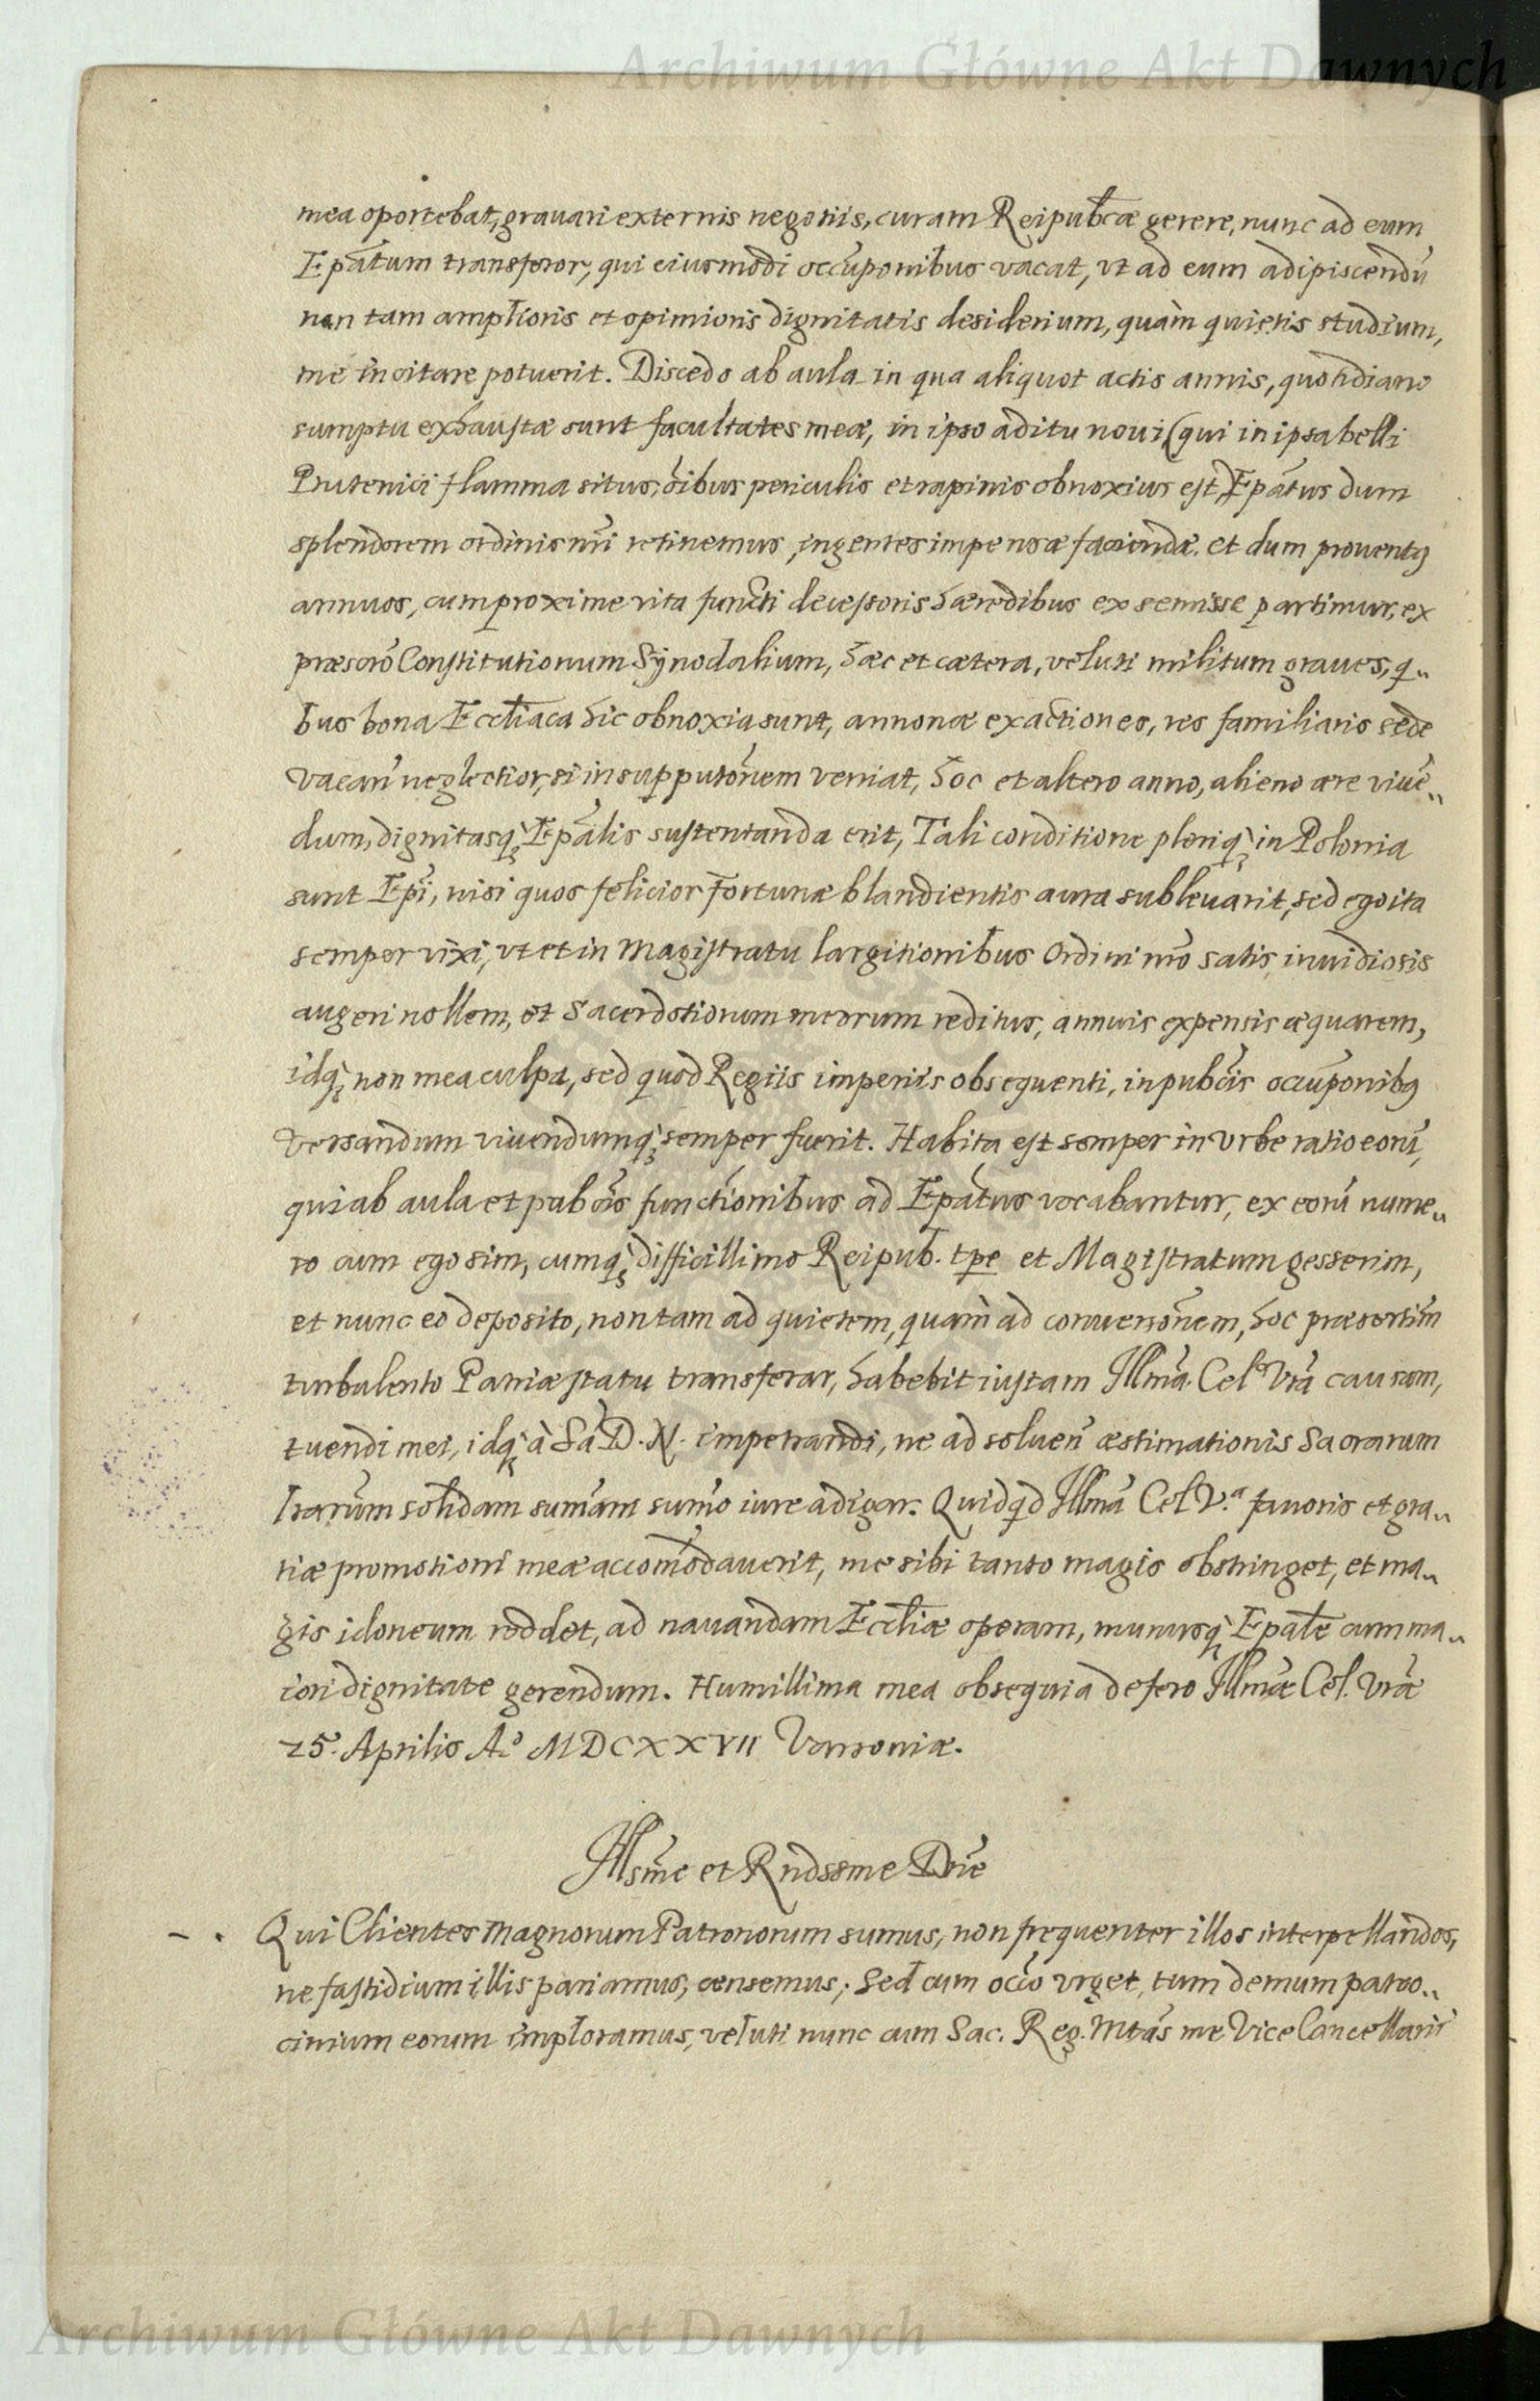 Archiwum Główne Akt Dawnych
mea oportebat, grauari externis negotiis, curam Reipubcæ gerere, nunc ad eum
Epatum transferor, qui eiusmodi occuponibus vacat, vt ad eum adipiscendū
non tam amplioris et opimioris dignitatis desiderium, quàm quietis studium,
me incitare potuerit. Discedo ab aula in qua aliquot actis annis, quotidiano
sumptu exhaustæ sunt facultates meæ, in ipso aditu noui, (qui in ipsa belli
Prutenici flamma situs, oībus periculis et rapinis obnoxius est,) Epatus dum
splendorem ordinis nri retinemus, ingentes impensæ faciendæ. et dum prouentq
annuos, cum proxime vita functi decessoris hæredibus ex semisse partimur, ex
præscrō Constitutionum Synodalium, hæc et cætera, veluti militum graues, q„
bus bona Eccliaca hic obnoxia sunt, annonæ exactiones, res familiaris sede
vacañ neglectior, si in supputōnem veniat, hoc et altero anno, alieno ære viuē„
dum, dignitasq; Epalis sustentanda erit, Tali conditione pleriq; in Polonia
sunt Epi, nisi quos felicior fortunæ blandientis aura subleuarit, sed ego ita
semper vixi, vt et in Magistratu largitionibus Ordini nrō satis inuidiosis
augeri nollem, et Sacerdotiorum meorum reditus, annuis expensis æquarem,
idq; non mea culpa, sed quod Regiis imperiis obsequenti, in pubcis occuponibq
versandum viuendumq; semper fuerit. Habita est semper in vrbe ratio eorū,
qui ab aula et pubcis functionibus ad Epatus vocabantur, ex eorū nume„
ro cum ego sim, cumq; difficillimo Reipub. tpe et Magistratum gesserim,
et nunc eo deposito, non tam ad quietem, quàm ad conuersōnem, hoc præsertim
turbulento Patriæ statu transferar, habebit iustam Illma. Celº Vrā causam,
tuendi mei, idq; à Sā D. N. impetrandi, ne ad soluen̄ æstimationis Sacrarum
lrarum solidam sumam sumō iure adigar. Quidqd Illma Cel V.ª fauoris et gra„
tiæ promotioni meæ accom̄odauerit, me sibi tanto magis obstringet, et ma„
gis idoneum reddet, ad nauandam Eccliæ operam, munusq; Epale cum ma„
iori dignitate gerendum. Humillima mea obsequia defero Illmæ Cel. Vræ
25. Aprilis Aº MDCXXVII Varsouiæ.
Illsme et Rndssme Dnē
Qui Clientes Magnorum Patronorum sumus, non frequenter illos interpellandos,
ne fastidium illis pariamus, censemus; Sed cum occō vrget, tum demum patro„
cinium eorum imploramus, veluti nunc cum Sac. Reg. Mtās me Vice Cancellarij
Archiwum Główne Akt Dawnych